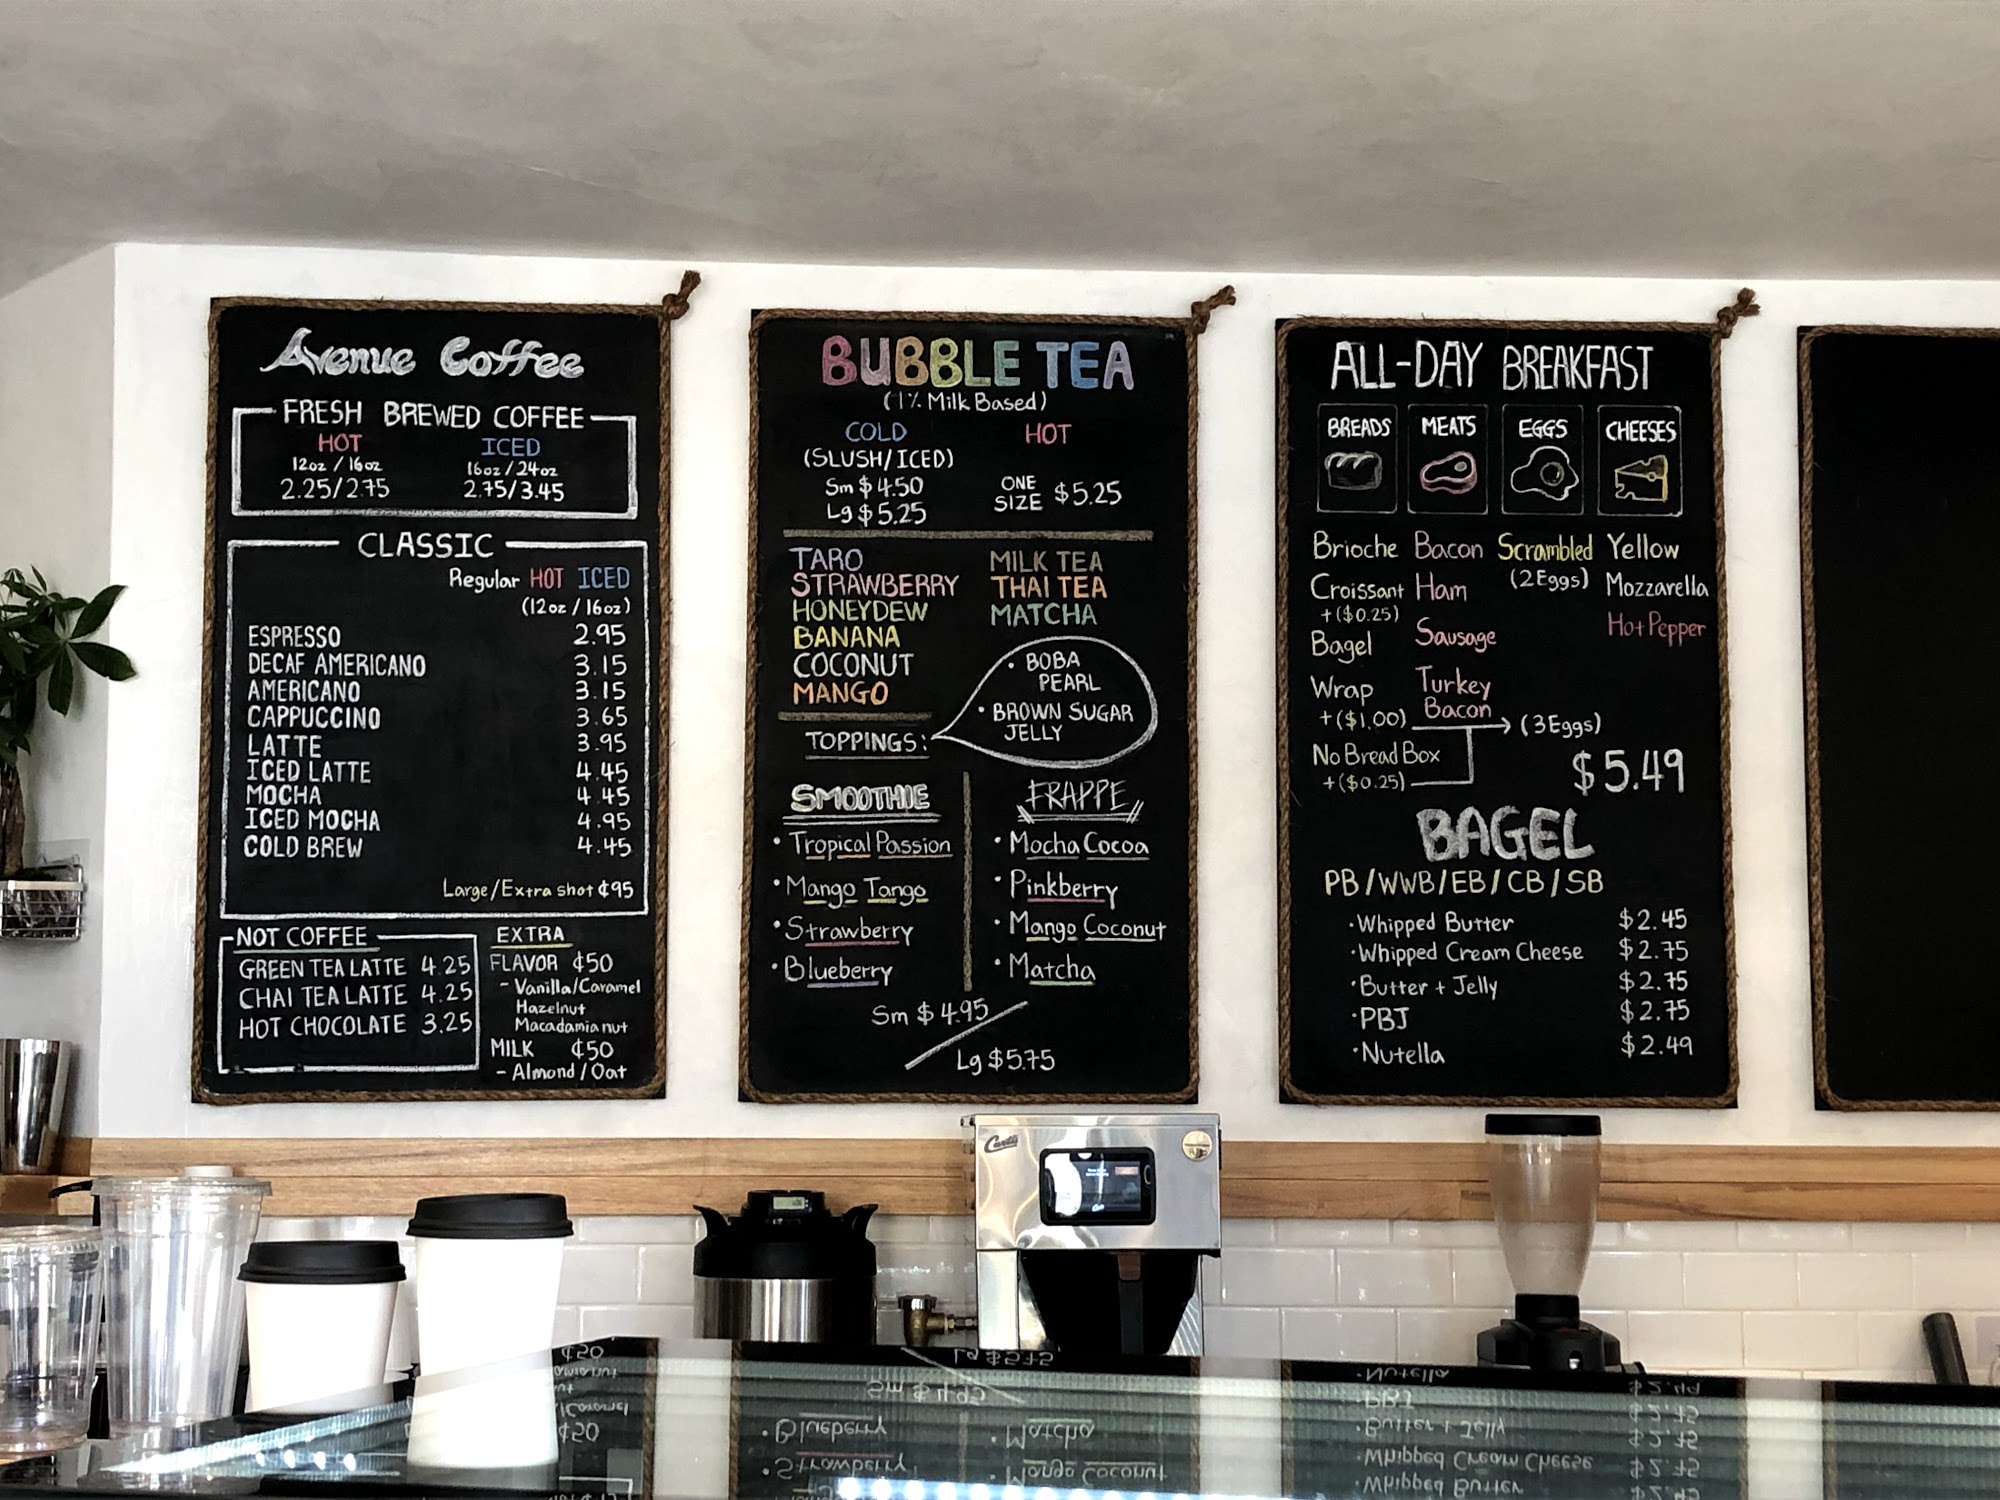 Avenue Coffee
FRESH BREWED COFFEE
HOT ICED
12oz / 16oz 16oz / 24oz
2.25/2.75 2.75/3.45
CLASSIC
Regular HOT ICED
(12oz / 16oz)
ESPRESSO 2.95
DECAF AMERICANO 3.15
AMERICANO 3.15
CAPPUCCINO 3.65
LATTE 3.95
ICED LATTE 4.45
MOCHA 4.45
ICED MOCHA 4.95
COLD BREW 4.45
Large/Extra shot ¢95
NOT COFFEE
GREEN TEA LATTE 4.25
CHAI TEA LATTE 4.25
HOT CHOCOLATE 3.25
EXTRA
FLAVOR ¢50
- Vanilla/Caramel
Hazelnut
Macadamia nut
MILK ¢50
- Almond / Oat
BUBBLE TEA
(1% Milk Based)
COLD HOT
(SLUSH/ICED)
Sm $4.50
Lg $5.25
ONE
SIZE $5.25
TARO MILK TEA
STRAWBERRY THAI TEA
HONEYDEW MATCHA
BANANA
COCONUT
MANGO
TOPPINGS:
• BOBA
PEARL
• BROWN SUGAR
JELLY
SMOOTHIE
• Tropical Passion
• Mango Tango
• Strawberry
• Blueberry
FRAPPE
• Mocha Cocoa
• Pinkberry
• Mango Coconut
• Matcha
Sm $4.95
Lg $5.75
ALL-DAY BREAKFAST
BREADS MEATS EGGS CHEESES
Brioche Bacon Scrambled Yellow
Croissant Ham (2Eggs) Mozzarella
+($0.25) Hot Pepper
Bagel Sausage
Wrap Turkey
+($1.00) Bacon (3Eggs)
No Bread Box
+($0.25)
$5.49
BAGEL
PB/WWB/EB/CB/SB
• Whipped Butter $2.45
• Whipped Cream Cheese $2.75
• Butter + Jelly $2.75
• PBJ $2.75
• Nutella $2.49
Curtis